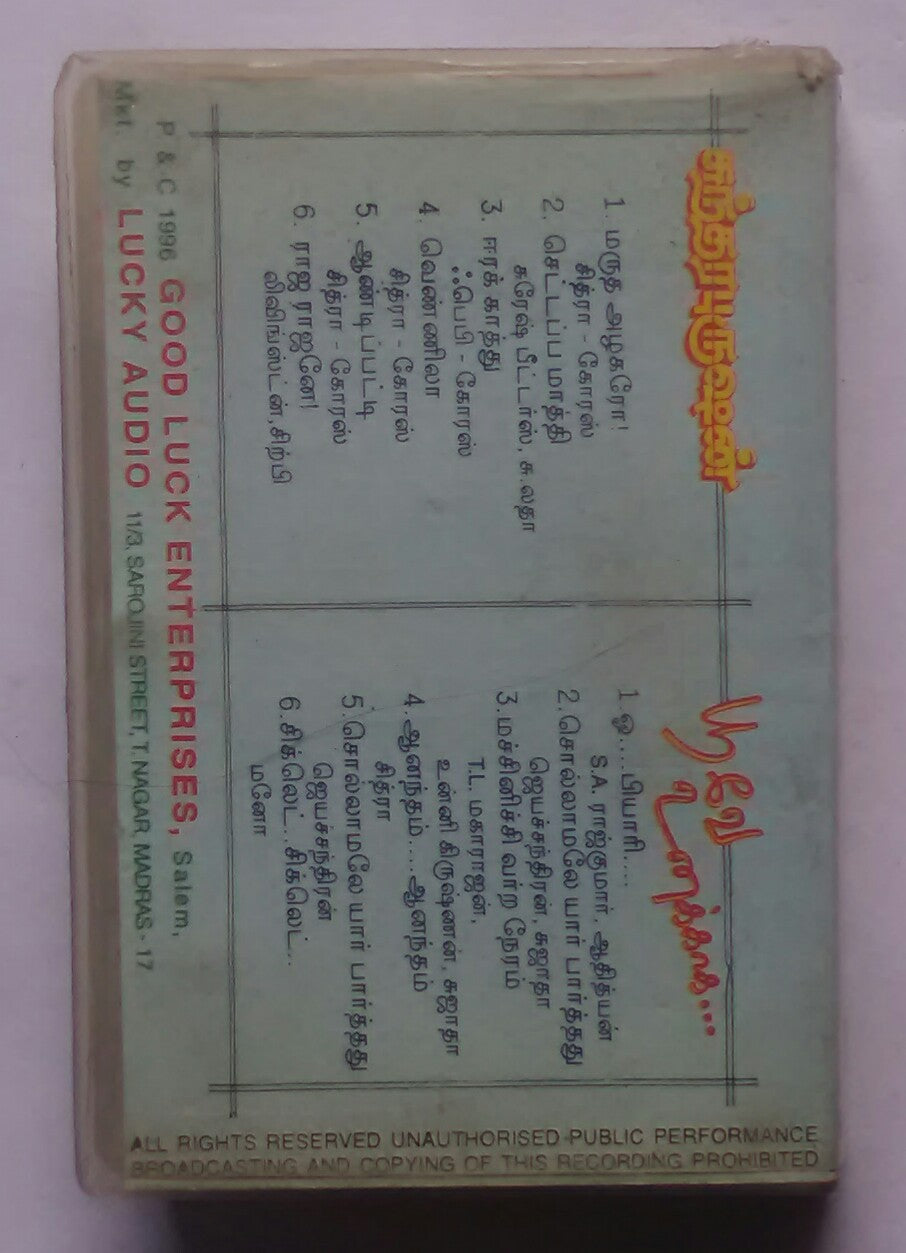 சுந்தரபுருஷன்
1. மருத அழகரோ!
சித்ரா - கோரஸ்
2. செட்டப்ப மாத்தி
சுரேஷ் பீட்டர்ஸ், சு.லதா
3. ஈரக் காத்து
ஃபெபி - கோரஸ்
4. வெண்ணிலா
சித்ரா - கோரஸ்
5. ஆண்டிப்பட்டி
சித்ரா - கோரஸ்
6. ராஜ ராஜனே!
லிவிங்ஸ்டன், சிற்பி
பூவே உனக்காக...
1.ஓ...பியாரி....
S.A. ராஜ்குமார், ஆதித்யன்
2.சொல்லாமலே யார் பார்த்தது
ஜெயச்சந்திரன், சுஜாதா
3.மச்சினிச்சி வர்ற நேரம்
T.L. மகாராஜன்,
உன்னி கிருஷ்ணன், சுஜாதா
4.ஆனந்தம்....ஆனந்தம்
சித்ரா
5.சொல்லாமலே யார் பார்த்தது
ஜெயச்சந்திரன்
6.சிக்லெட்..சிக்லெட்...
மனோ
P & C 1996 GOOD LUCK ENTERPRISES, Salem,
Mkt. by LUCKY AUDIO 11/3, SAROJINI STREET, T. NAGAR, MADRAS - 17
ALL RIGHTS RESERVED UNAUTHORISED PUBLIC PERFORMANCE
BROADCASTING AND COPYING OF THIS RECORDING PROHIBITED